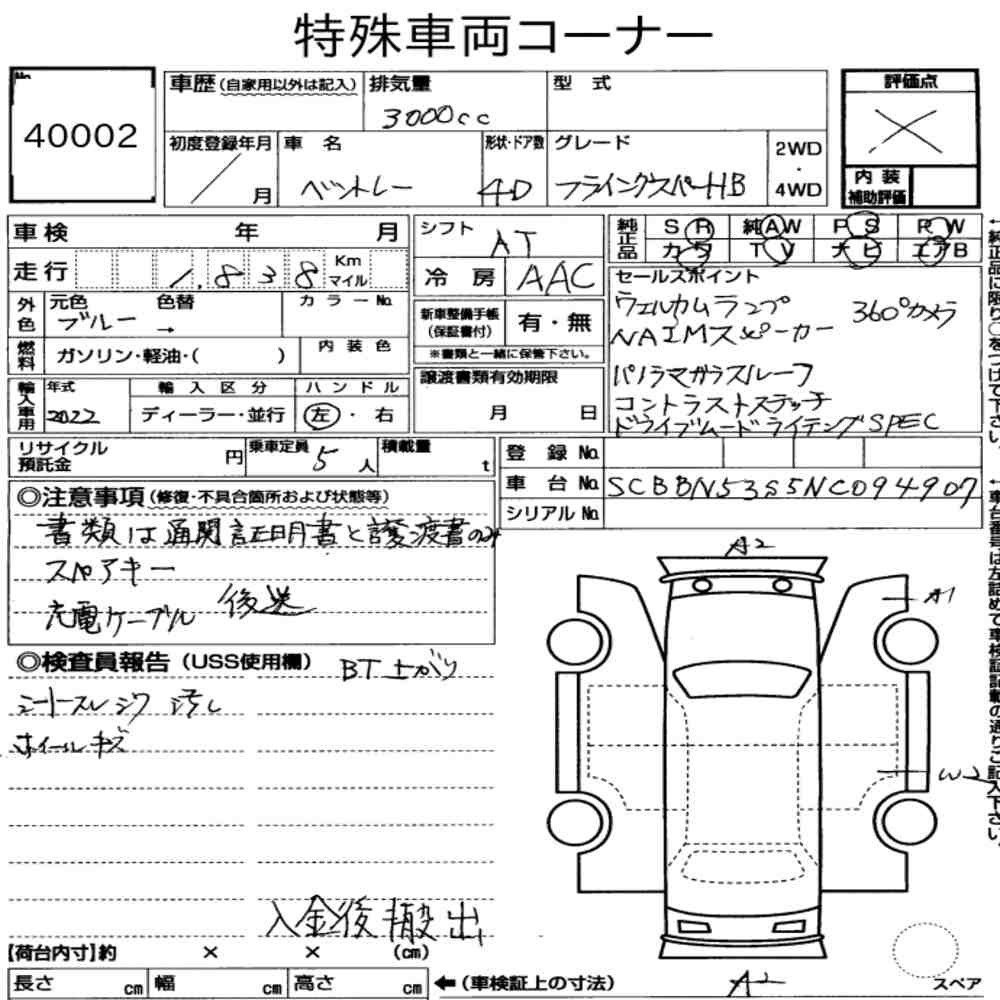 特殊車両コーナー
No
40002
車歴(自家用以外は記入)
排気量
3000cc
型 式
評価点
初度登録年月
／ 月
車 名
ベントレー
形状・ドア数
4D
グレード
フライングスパーHB
2WD
・
4WD
内 装
補助評価
車検 年 月
シフト
AT
純正品
SR 純AW PS PW
カワ TV ナビ エアB
走行 1,838 Km マイル
冷 房 AAC
セールスポイント
ウェルカムランプ 360°カメラ
NAIMスピーカー
パノラマガラスルーフ
コントラストステッチ
ドライブムードライテングSPEC
外色
元色 色替
ブルー →
カラーNo.
新車整備手帳
(保証書付)
有・無
※書類と一緒に保管下さい。
燃料
ガソリン・軽油・( )
内 装 色
譲渡書類有効期限
月 日
輸入車用
年式
2022
輸 入 区 分
ディーラー・並行
ハ ン ド ル
左・右
リサイクル
預託金
円
乗車定員
5人
積載量
t
登 録 No.
車 台 No. SCBBN53S5NC094907
シリアルNo.
◎注意事項(修復・不具合箇所および状態等)
書類は通関証明書と譲渡書のみ
スペアキー
充電ケーブル 後送
◎検査員報告(USS使用欄)
BT上がり
シートスレシワ 汚し
ホイールキズ
入金後搬出
A2
A1
W2
A2
スペア
【荷台内寸】約 × × (cm)
長さ cm 幅 cm 高さ cm
←(車検証上の寸法)
←純正品に限り○をつけて下さい。
←車台番号は左詰めで車検証記載の通りご記入下さい。